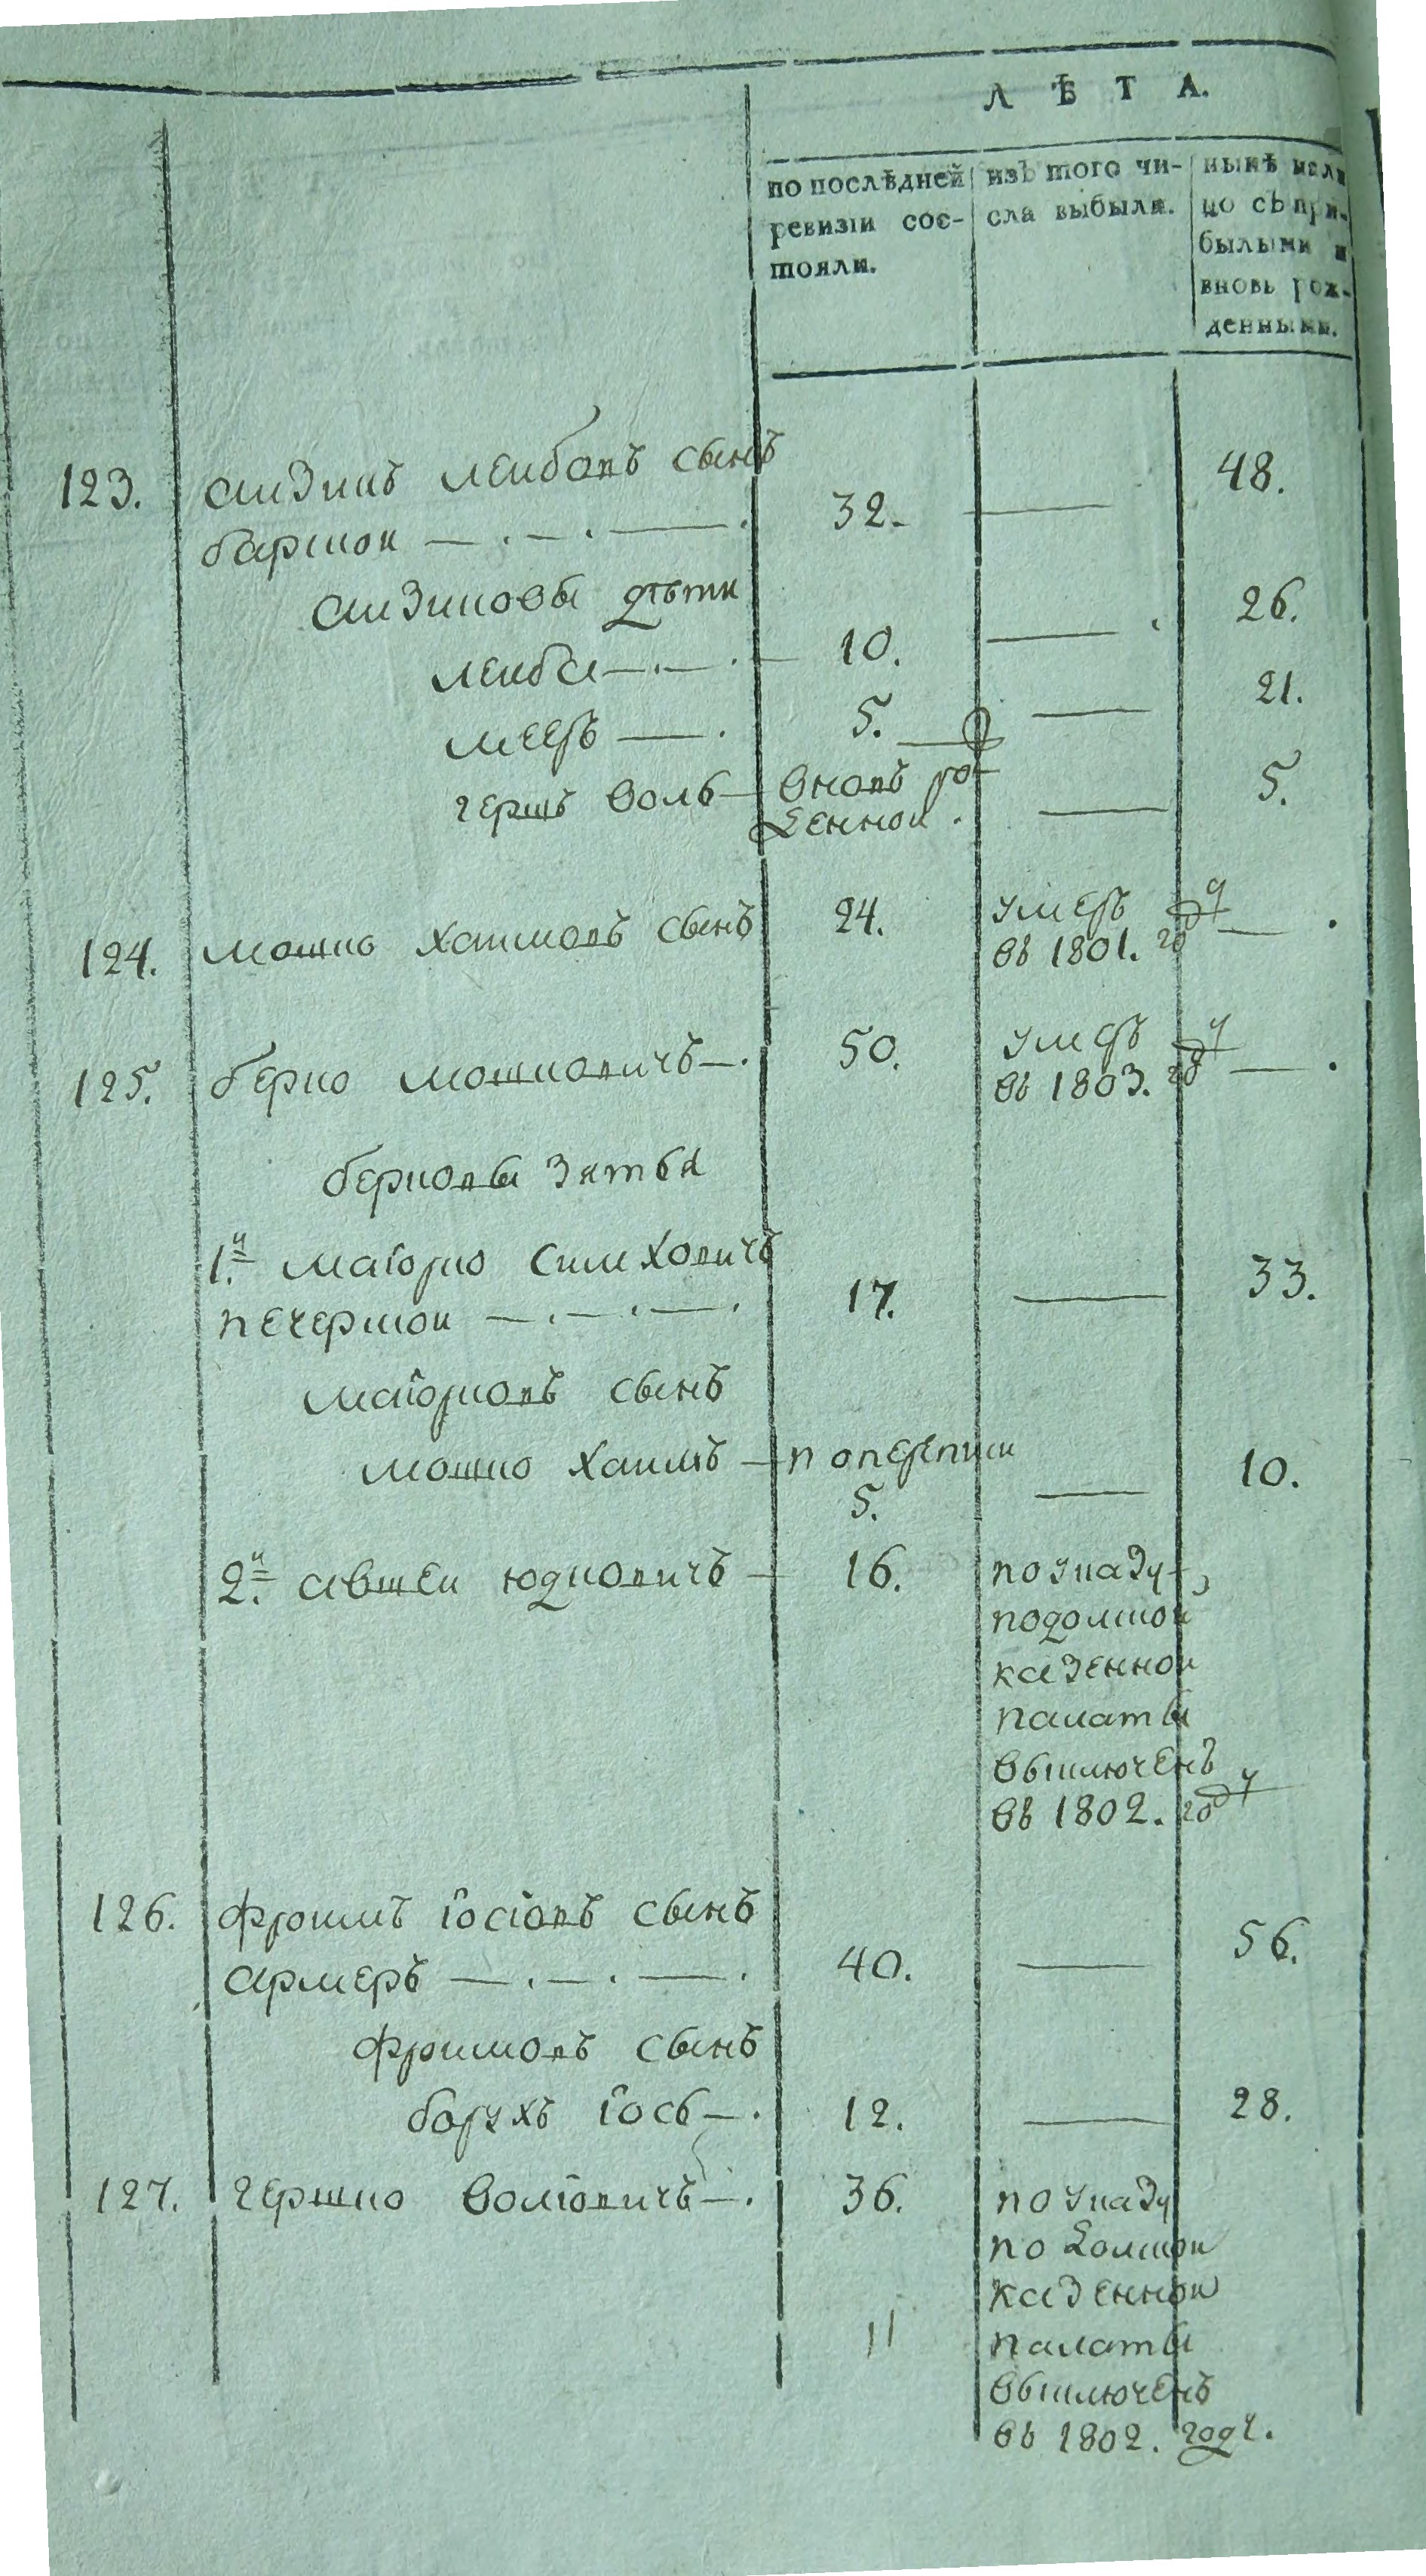 ЛѢТА.
по послѣдней
ревизіи сос-
тояли.
изъ того чи-
сла выбыли.
нынѣ нали
цо съ при-
былыми и
вновь рож-
денными.
123. Аизикъ Лейбовъ сынъ
32. 48.
Аизиковы дѣти
Лейба 10. 26.
Мееръ 5. 21.
Гершъ Воль вновь ро
денной. 5.
124. Мошко Хаимовъ сынъ 24. умеръ
въ 1801. году
125. Берко Мошковичъ 50. умеръ
въ 1803. году
Берковы зятья
1й Маіорко Симховичъ
17. 33.
Маіорковъ сынъ
Мошко Хаимъ по переписи
5. 10.
2й Авшей Юдковичъ 16. по указу
подолской
казенной
палаты
выключенъ
въ 1802. году
126. Фроимъ Іосіовъ сынъ
40. 56.
Фроимовъ сынъ
Борухъ Іось 12. 28.
127. Гершко Волѣовичъ 36. по указу
подолской
казенной
палаты
выключенъ
въ 1802. году.